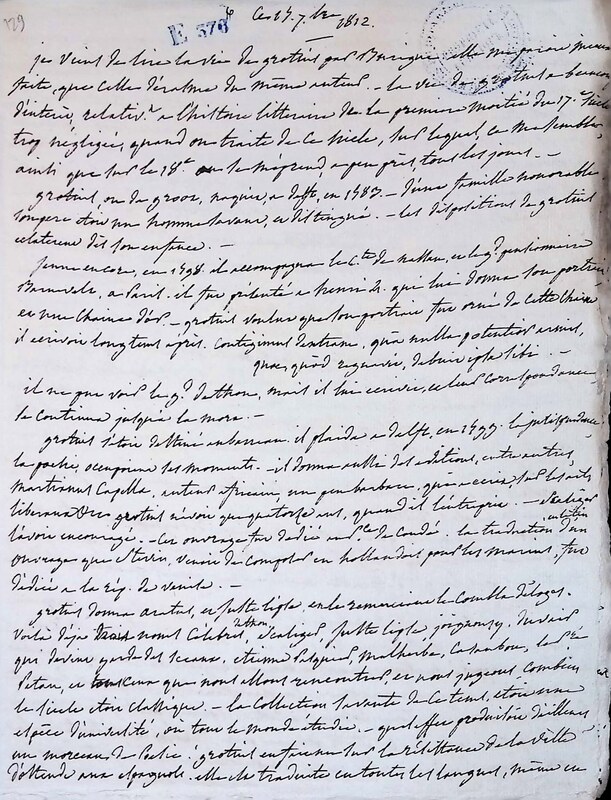 129
E 376
Ce 27. 7.bre 1812.
je viens de lire la vie de grotius par Burigni elle m'a paru mieux
faite, que celle d'érasme du même auteur. - la vie de grotius a beaucoup
d'intérêt, relativt a l'histoire litteraire de la premiere moitié du 17.e siècle
trop négligée, quand on traite de ce siècle, sur lequel, ce me semble
ainsi que sur le 18.e on se méprend a peu près tous les jours. -
grotius, ou de groot, naquit, a delft, en 1583 - d'une famille honorable
son père étoit un homme savant, et distingué. - les dispositions de grotius
éclatèrent dès son enfance. -
jeune encore, en 1598. il accompagna le C.te de nassau, et le g.d pensionnaire
Barnevelt, a Paris. il fut présenté a henri 4. qui lui donna son portrait
et une chaine d'or. - grotius voulut que son portrait fut orné de cette chaine
il écrivoit longtems après. Contigimus dextram, qua nulla potentior armis,
quae, quod regnavit, debuit ipsa sibi. -
il ne put voir le p.t de thou, mais il lui écrivit, et leur correspondance
se continua jusqu'à la mort. -
grotius s'étoit destiné au barreau. il plaida a delft, en 1599. la jurisprudence
la poësie, occupoient ses moments. - il donna aussi des éditions, entre autres,
Martianus Capella, auteur africain, un peu barbare, qui a écrit sur les arts
liberaux grotius n'avoit que quatorze ans, quand il l'entreprit - Scaliger
l'avoit encouragé. - cet ouvrage fut dédié au P.ce de Condé. la traduction en latin d'un
ouvrage que Stevin, venoit de composer en hollandais pour les marins, fut
dédiée a la rép. de venise. -
grotius donna aratus, et juste lipse, en le remerciant le combla d'éloges.
voilà déjà noms célèbres, de thou, scaliger, juste lipse, du vair
qui devint garde des sceaux, etienne pasquier, malherbe, Casaubon, le P.
Petau, et tous ceux que nous allons rencontrer, et nous jugeons combien
le siècle étoit classique. - la collection savante de ce tems étoit une
espèce d'université, où tout le monde étudie. - quel effet produisoit d'ailleurs
un morceau de poësie! grotius en fit une sur la résistance de la ville
d'ostende aux espagnols. elle fut traduite en toutes les langues, même en